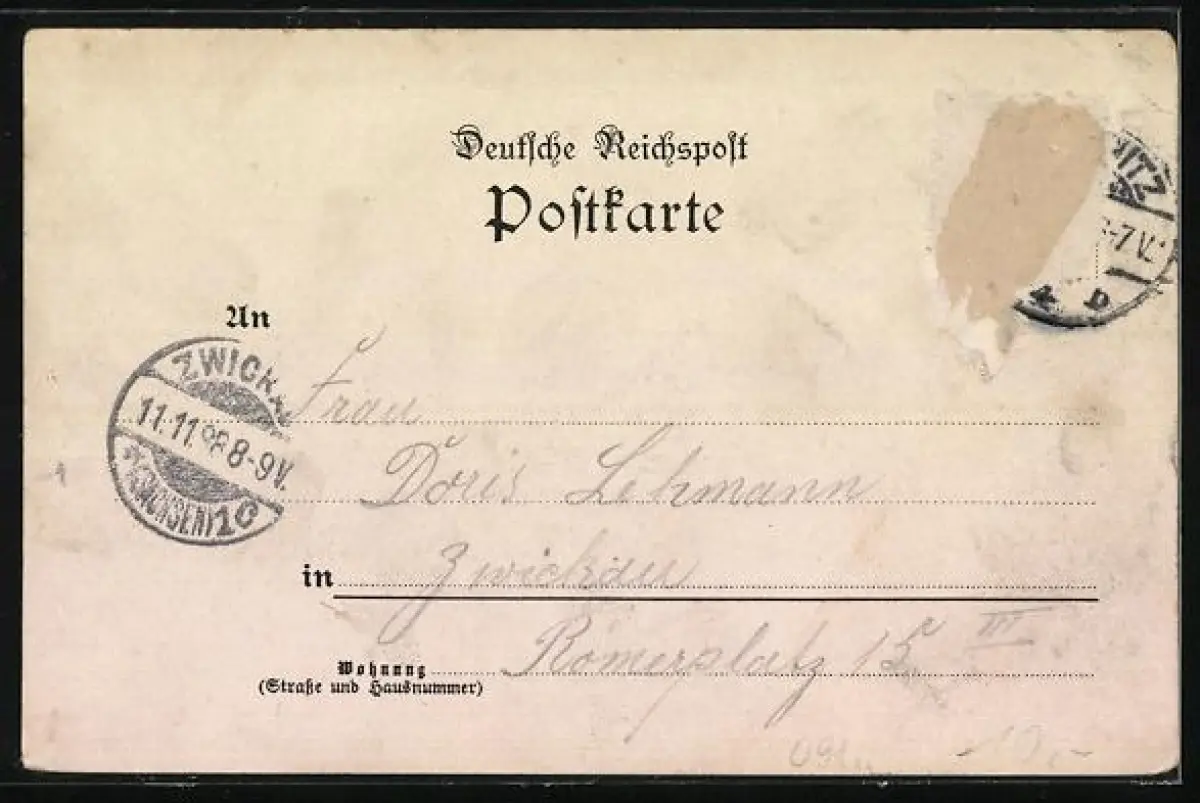 Deutsche Reichspost
Postkarte
ITZ
-7 V.
D
An
ZWICKAU
11.11.98 8-9V.
* (SACHSEN) 1c
Frau
Doris Lehmann
in Zwickau
Wohnung Römerplatz 15 III
(Straße und Hausnummer)